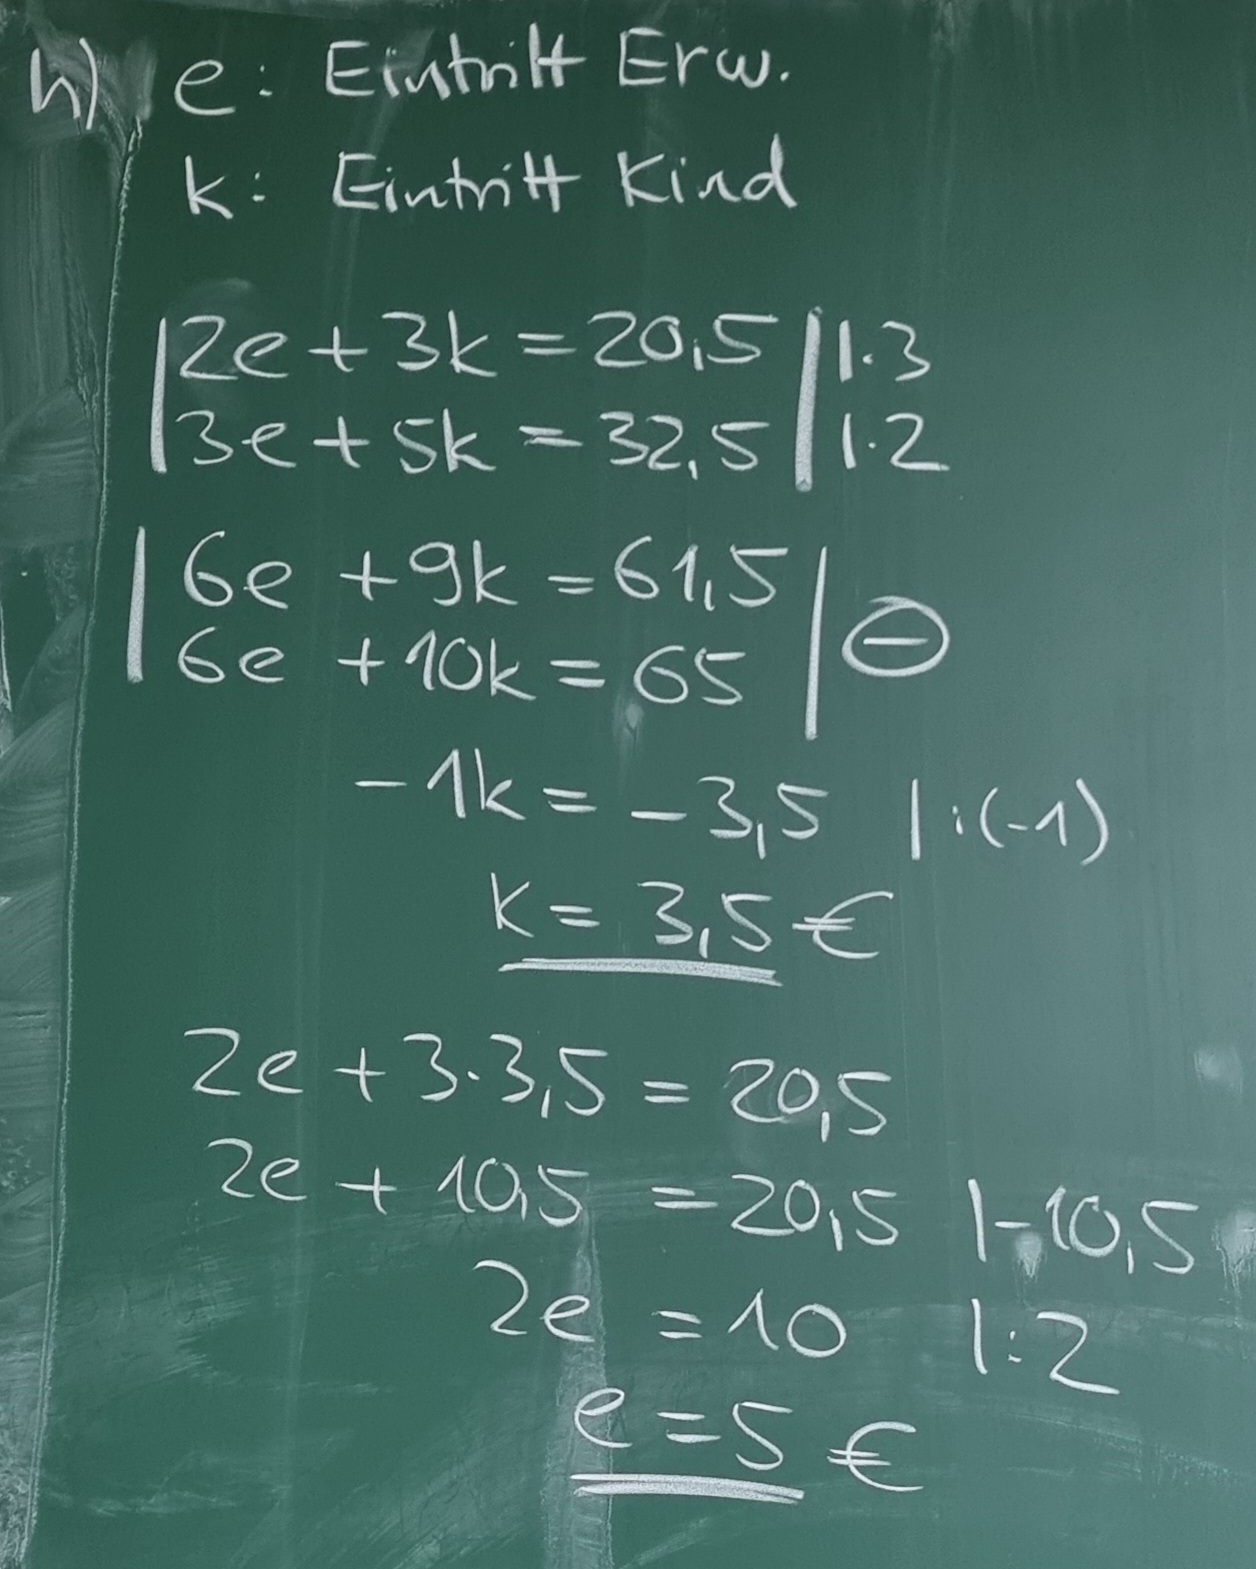 h) e: Eintritt Erw.
k: Eintritt Kind
|2e + 3k = 20,5 | |·3
|3e + 5k = 32,5 | |·2
|6e + 9k = 61,5 |
|6e + 10k = 65 | ⊖
-1k = -3,5 |:(-1)
k = 3,5 €
2e + 3·3,5 = 20,5
2e + 10,5 = 20,5 |-10,5
2e = 10 |:2
e = 5 €